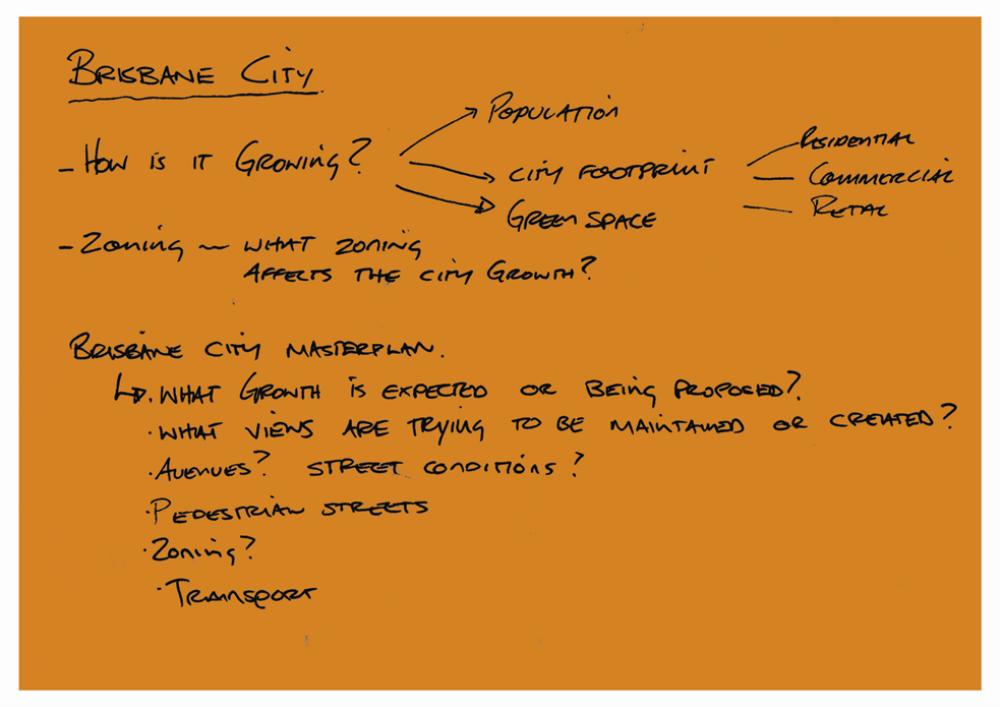 BRISBANE CITY
- HOW IS IT GROWING?
POPULATION
CITY FOOTPRINT
GREEN SPACE
RESIDENTIAL
COMMERCIAL
RETAIL
- ZONING ~ WHAT ZONING
AFFECTS THE CITY GROWTH?
BRISBANE CITY MASTERPLAN.
↳ . WHAT GROWTH IS EXPECTED OR BEING PROPOSED?
· WHAT VIEWS ARE TRYING TO BE MAINTAINED OR CREATED?
· AVENUES? STREET CONDITIONS?
· PEDESTRIAN STREETS
· ZONING?
· TRANSPORT